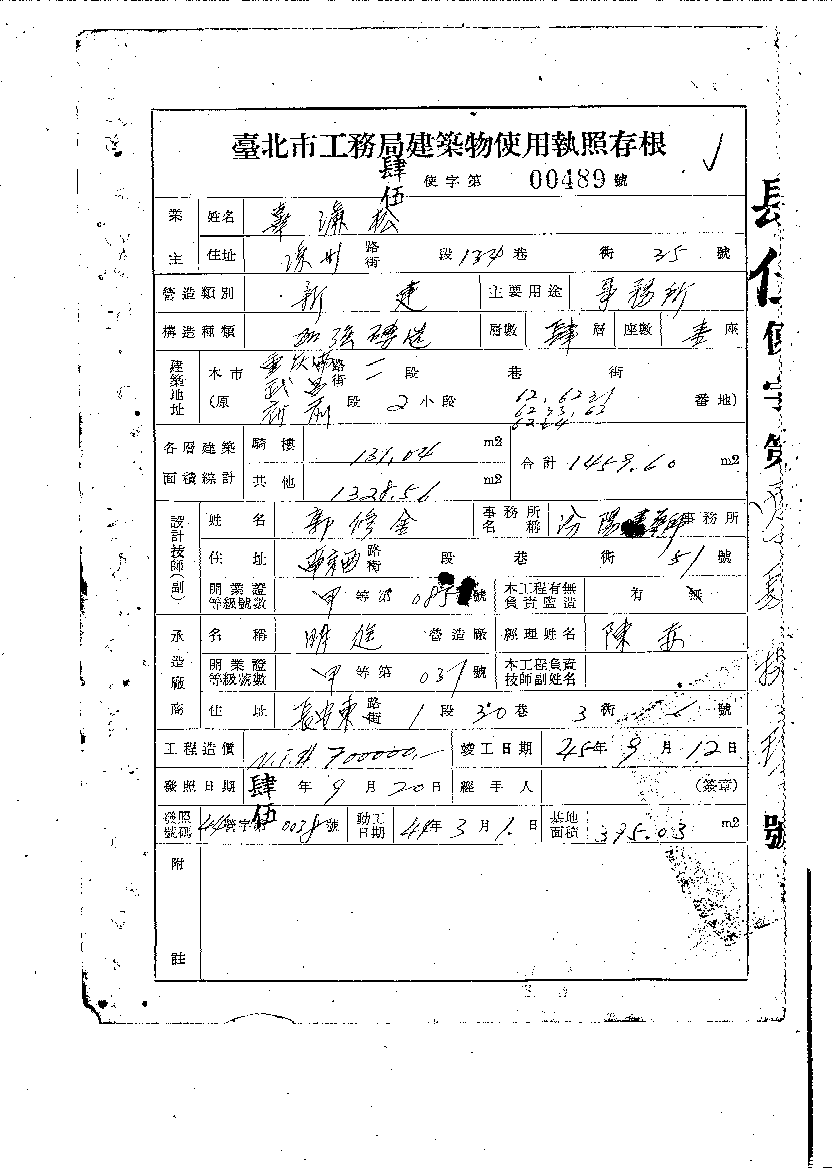 臺北市工務局建築物使用執照存根
肆伍 使字第 00489 號
業主 姓名 松
住址 涼州 路街 段 134 巷 街 35 號
營造類別 新建 主要用途 事務所
構造種類 加強磚造 層數 肆 層 座數 壹 座
建築地址 本市 重慶南 路街 一 段 巷 街
(原 段 2 小段 番地)
各層建築面積綜計 騎樓 131.04 m2 合計 1459.60 m2
其他 1328.56 m2
設計技師(副) 姓名 郭修金 事務所名稱 汾陽 事務所
住址 路街 段 巷 街 51 號
開業證等級號數 甲 等第 號 本工程有無負責監造 有 無
承造廠商 名稱 明進 營造廠 經理姓名 陳
開業證等級號數 甲 等第 031 號 本工程負責技師副姓名
住址 長安東 路街 1 段 30 巷 3 街 號
工程造價 N.T.$ 700000.- 竣工日期 45 年 9 月 12 日
發照日期 肆伍 年 9 月 20 日 經手人 (簽章)
發照號碼 44 字第 0038 號 動工日期 44 年 3 月 1 日 基地面積 395.03 m2
附註